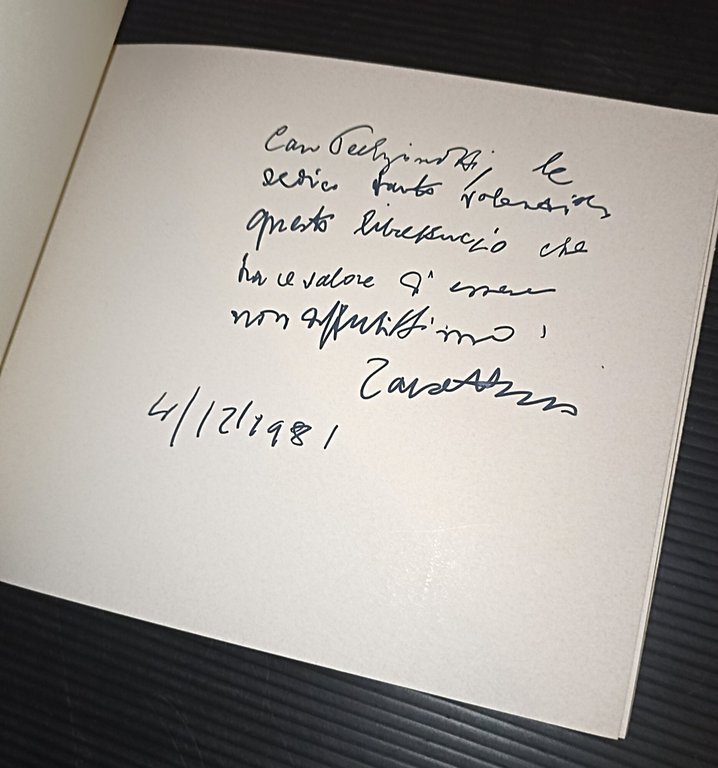 Caro le
dedico tanto volentieri
questo libercuccio che
ha il valore d'essere
non
Zavattini
4/12/1981